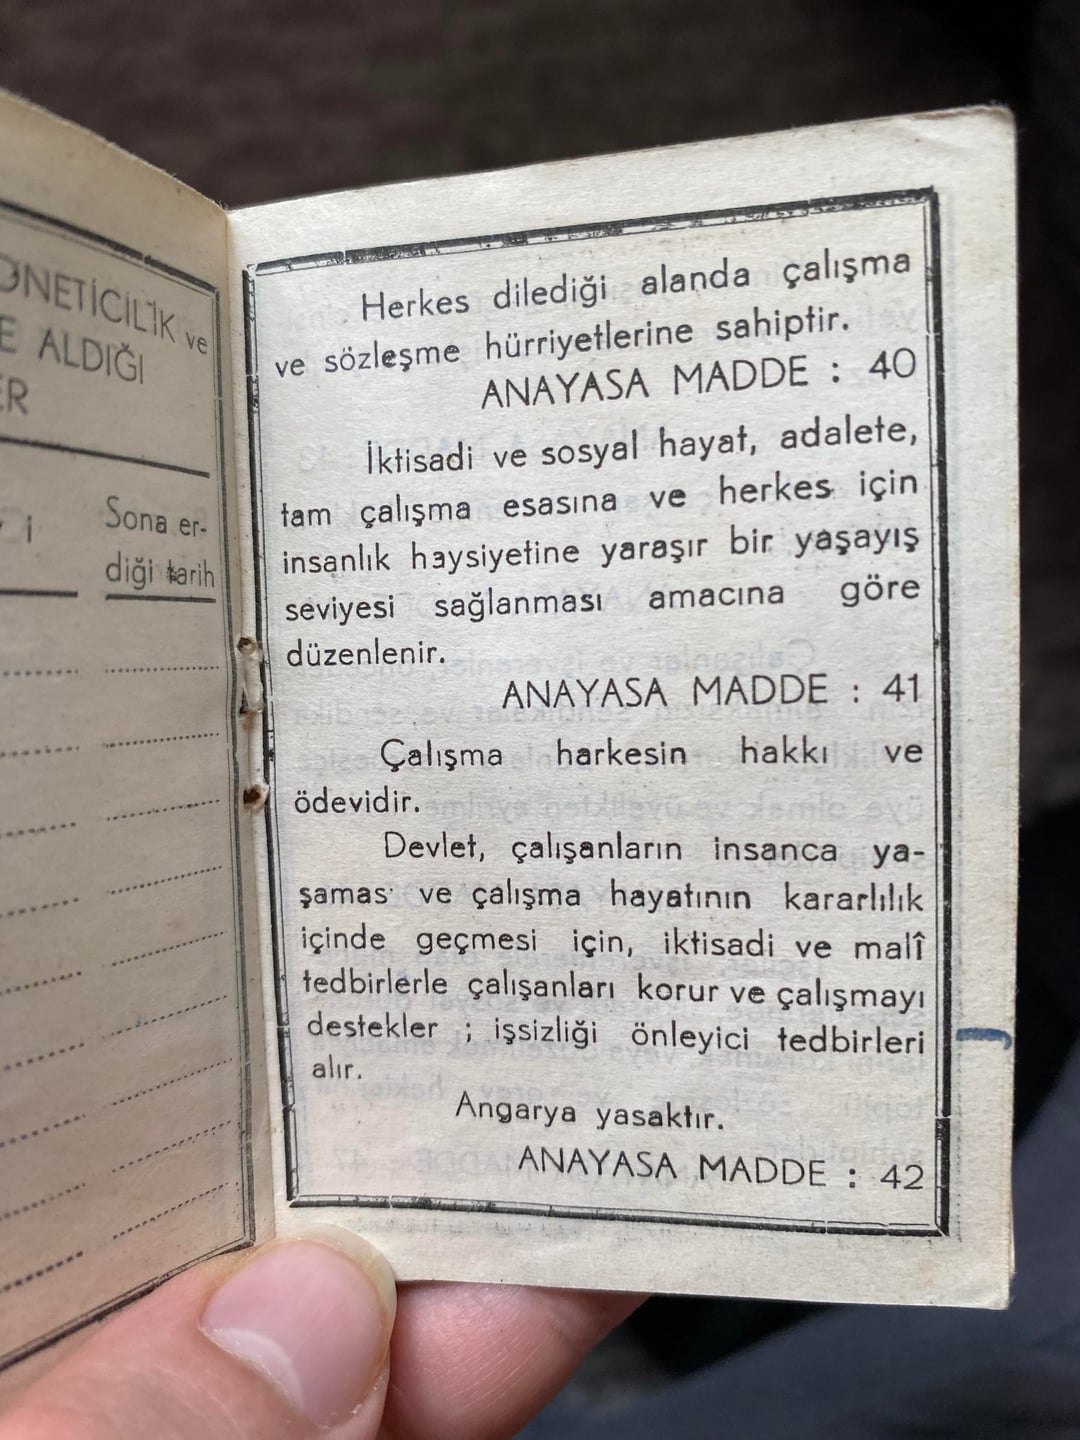 ve
E ALDIĞI
ER
i
Sona er-
diği tarih
Herkes dilediği alanda çalışma
ve sözleşme hürriyetlerine sahiptir.
ANAYASA MADDE : 40
İktisadi ve sosyal hayat, adalete,
tam çalışma esasına ve herkes için
insanlık haysiyetine yaraşır bir yaşayış
seviyesi sağlanması amacına göre
düzenlenir.
ANAYASA MADDE : 41
Çalışma harkesin hakkı ve
ödevidir.
Devlet, çalışanların insanca ya-
şamas ve çalışma hayatının kararlılık
içinde geçmesi için, iktisadi ve malî
tedbirlerle çalışanları korur ve çalışmayı
destekler ; işsizliği önleyici tedbirleri
alır.
Angarya yasaktır.
ANAYASA MADDE : 42